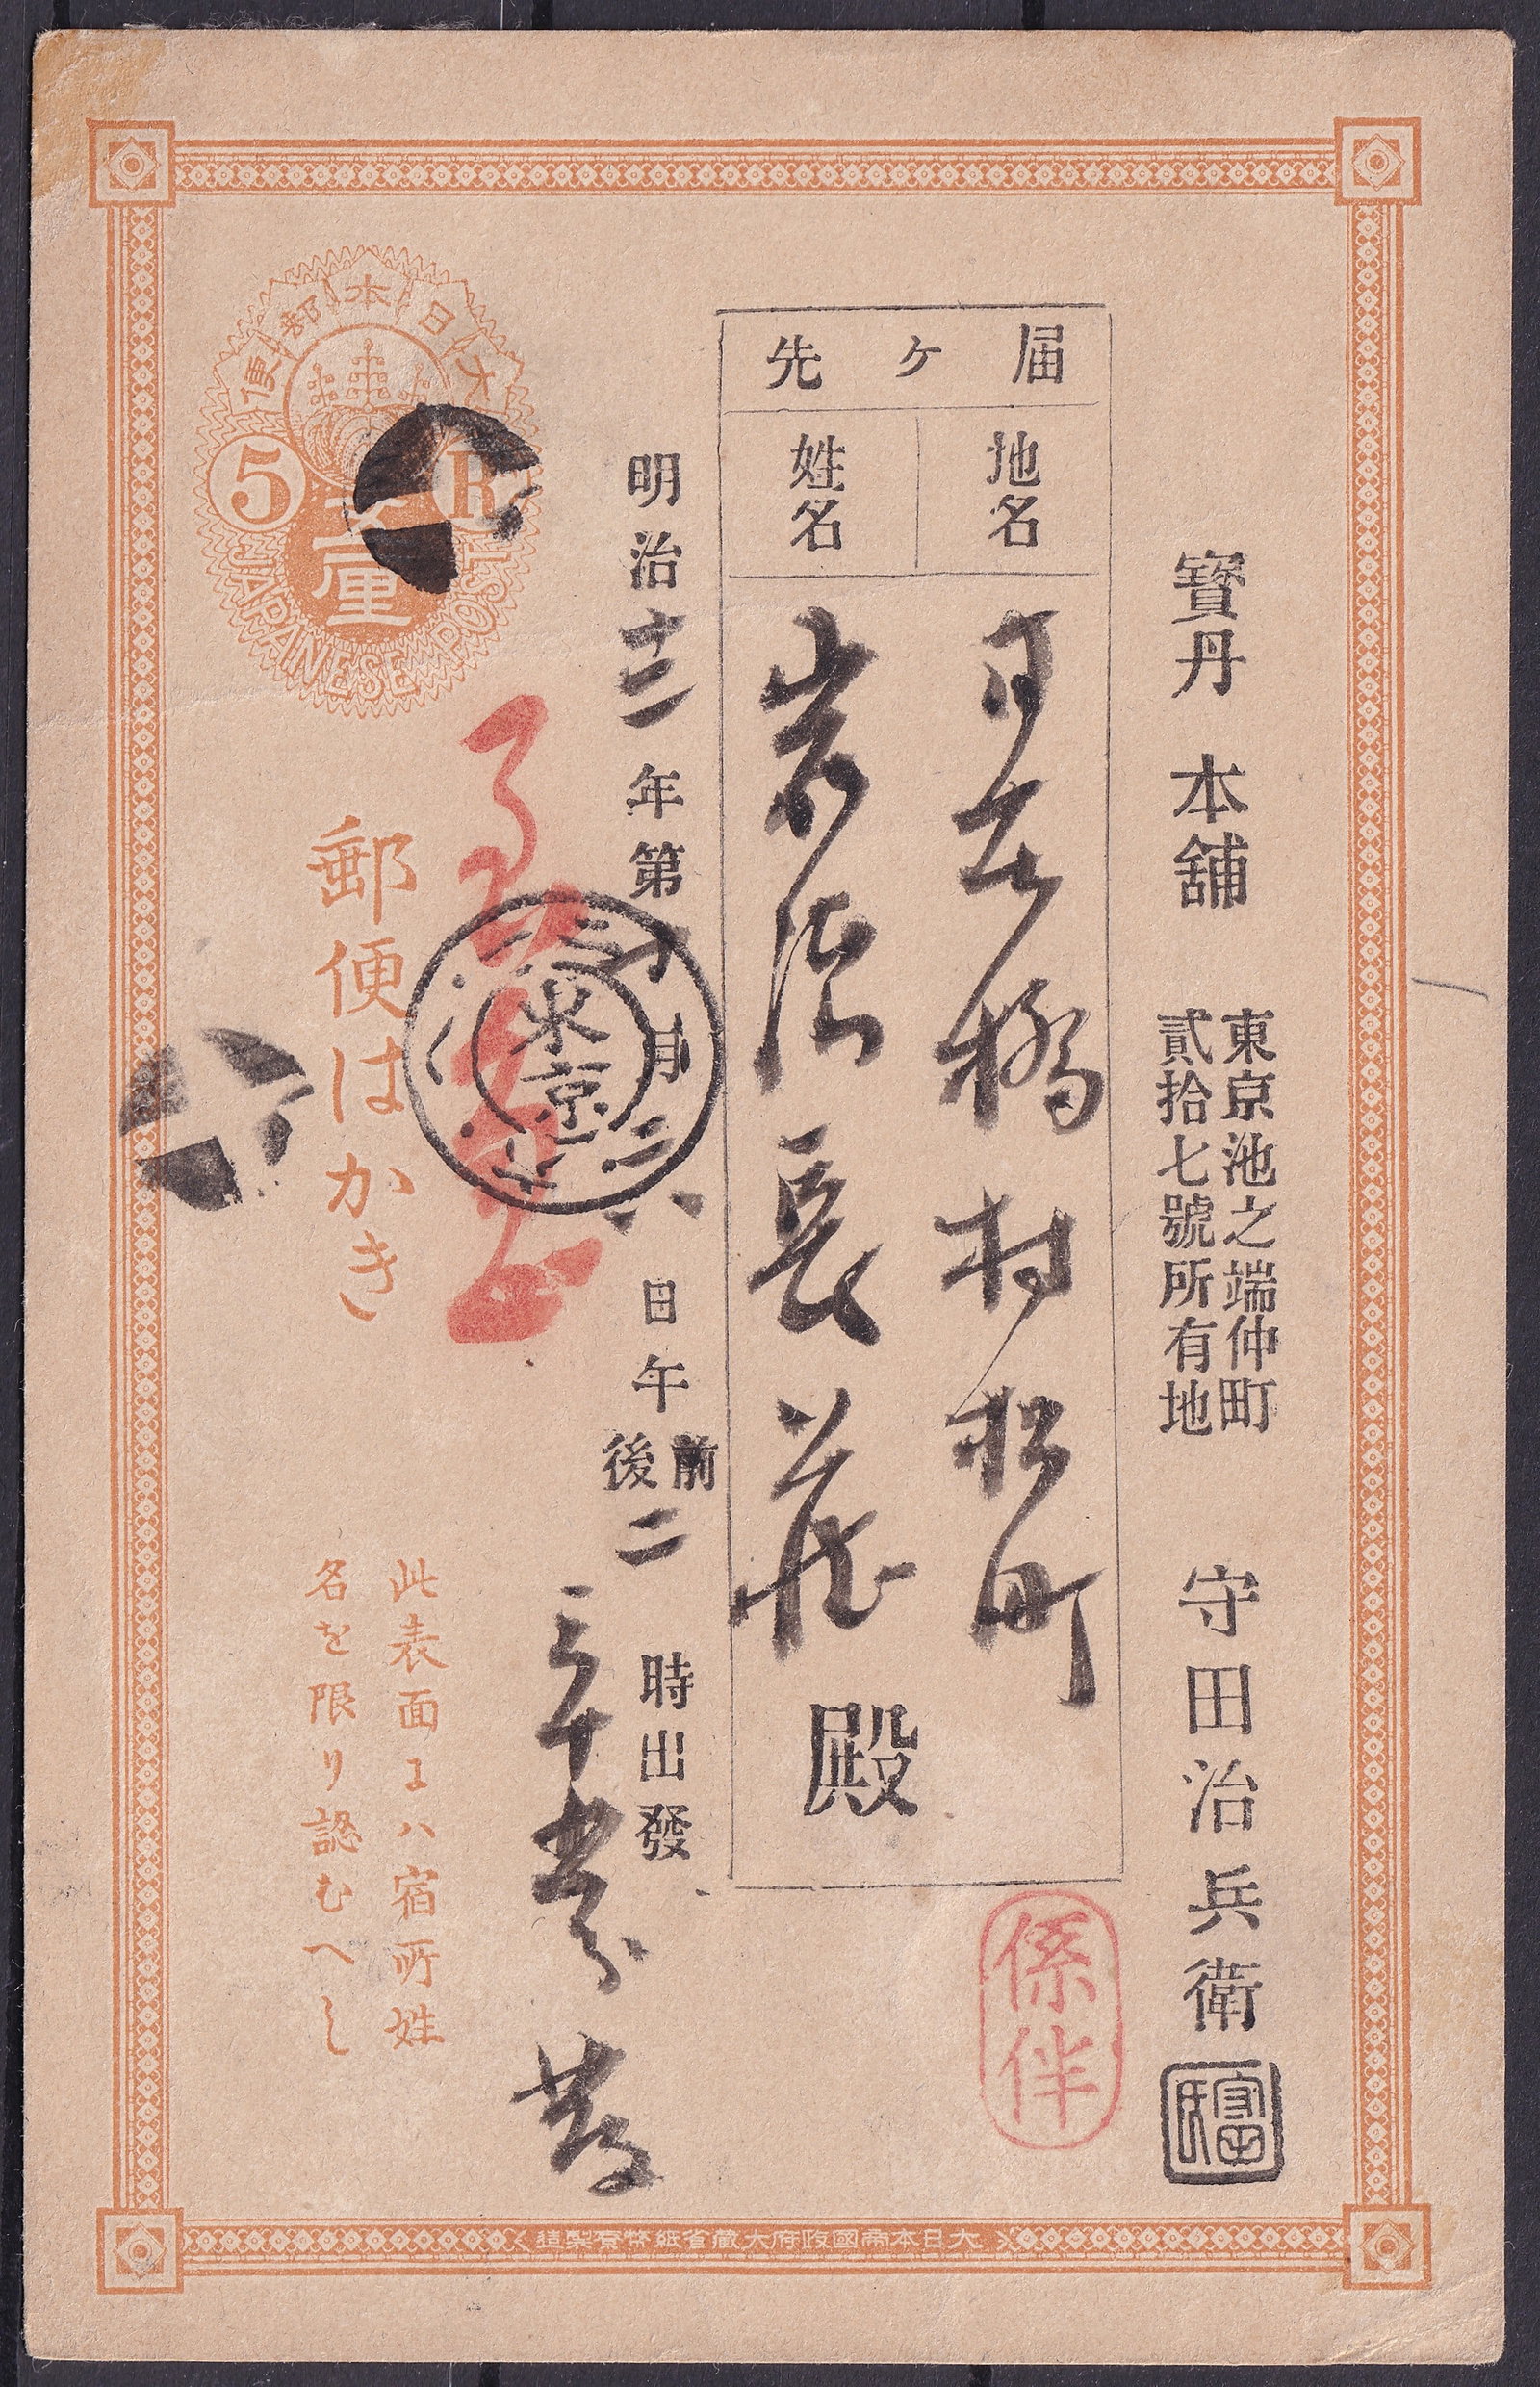 寶丹 本舗
東京池之端仲町
貳拾七號所有地
守田治兵衛
届ケ先
地名
姓名
日本橋村松町
長
殿
係伴
明治十二年第十月二八日午前後二時出發
三十
東京
大日本郵便
5 R
五厘
JAPANESE POST
郵便はかき
此表面にハ宿所姓
名を限り認むへし
大日本帝國政府大藏省紙幣寮製造